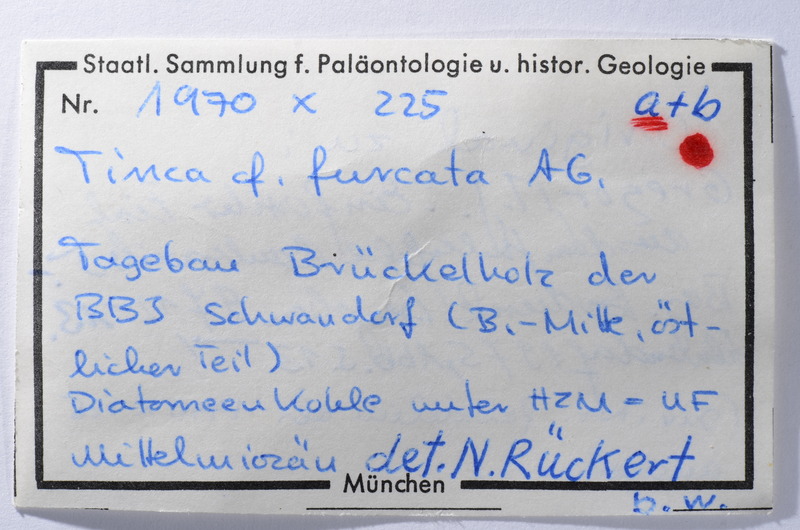 Staatl. Sammlung f. Paläontologie u. histor. Geologie
Nr. 1970 X 225 a+b
Tinca cf. furcata AG.
Tagebau Brückelholz der
BBI Schwandorf (B.-Mitte, öst-
licher Teil)
Diatomeenkohle unter HZM = UF
Mittelmiozän det. N. Rückert
München
b.w.